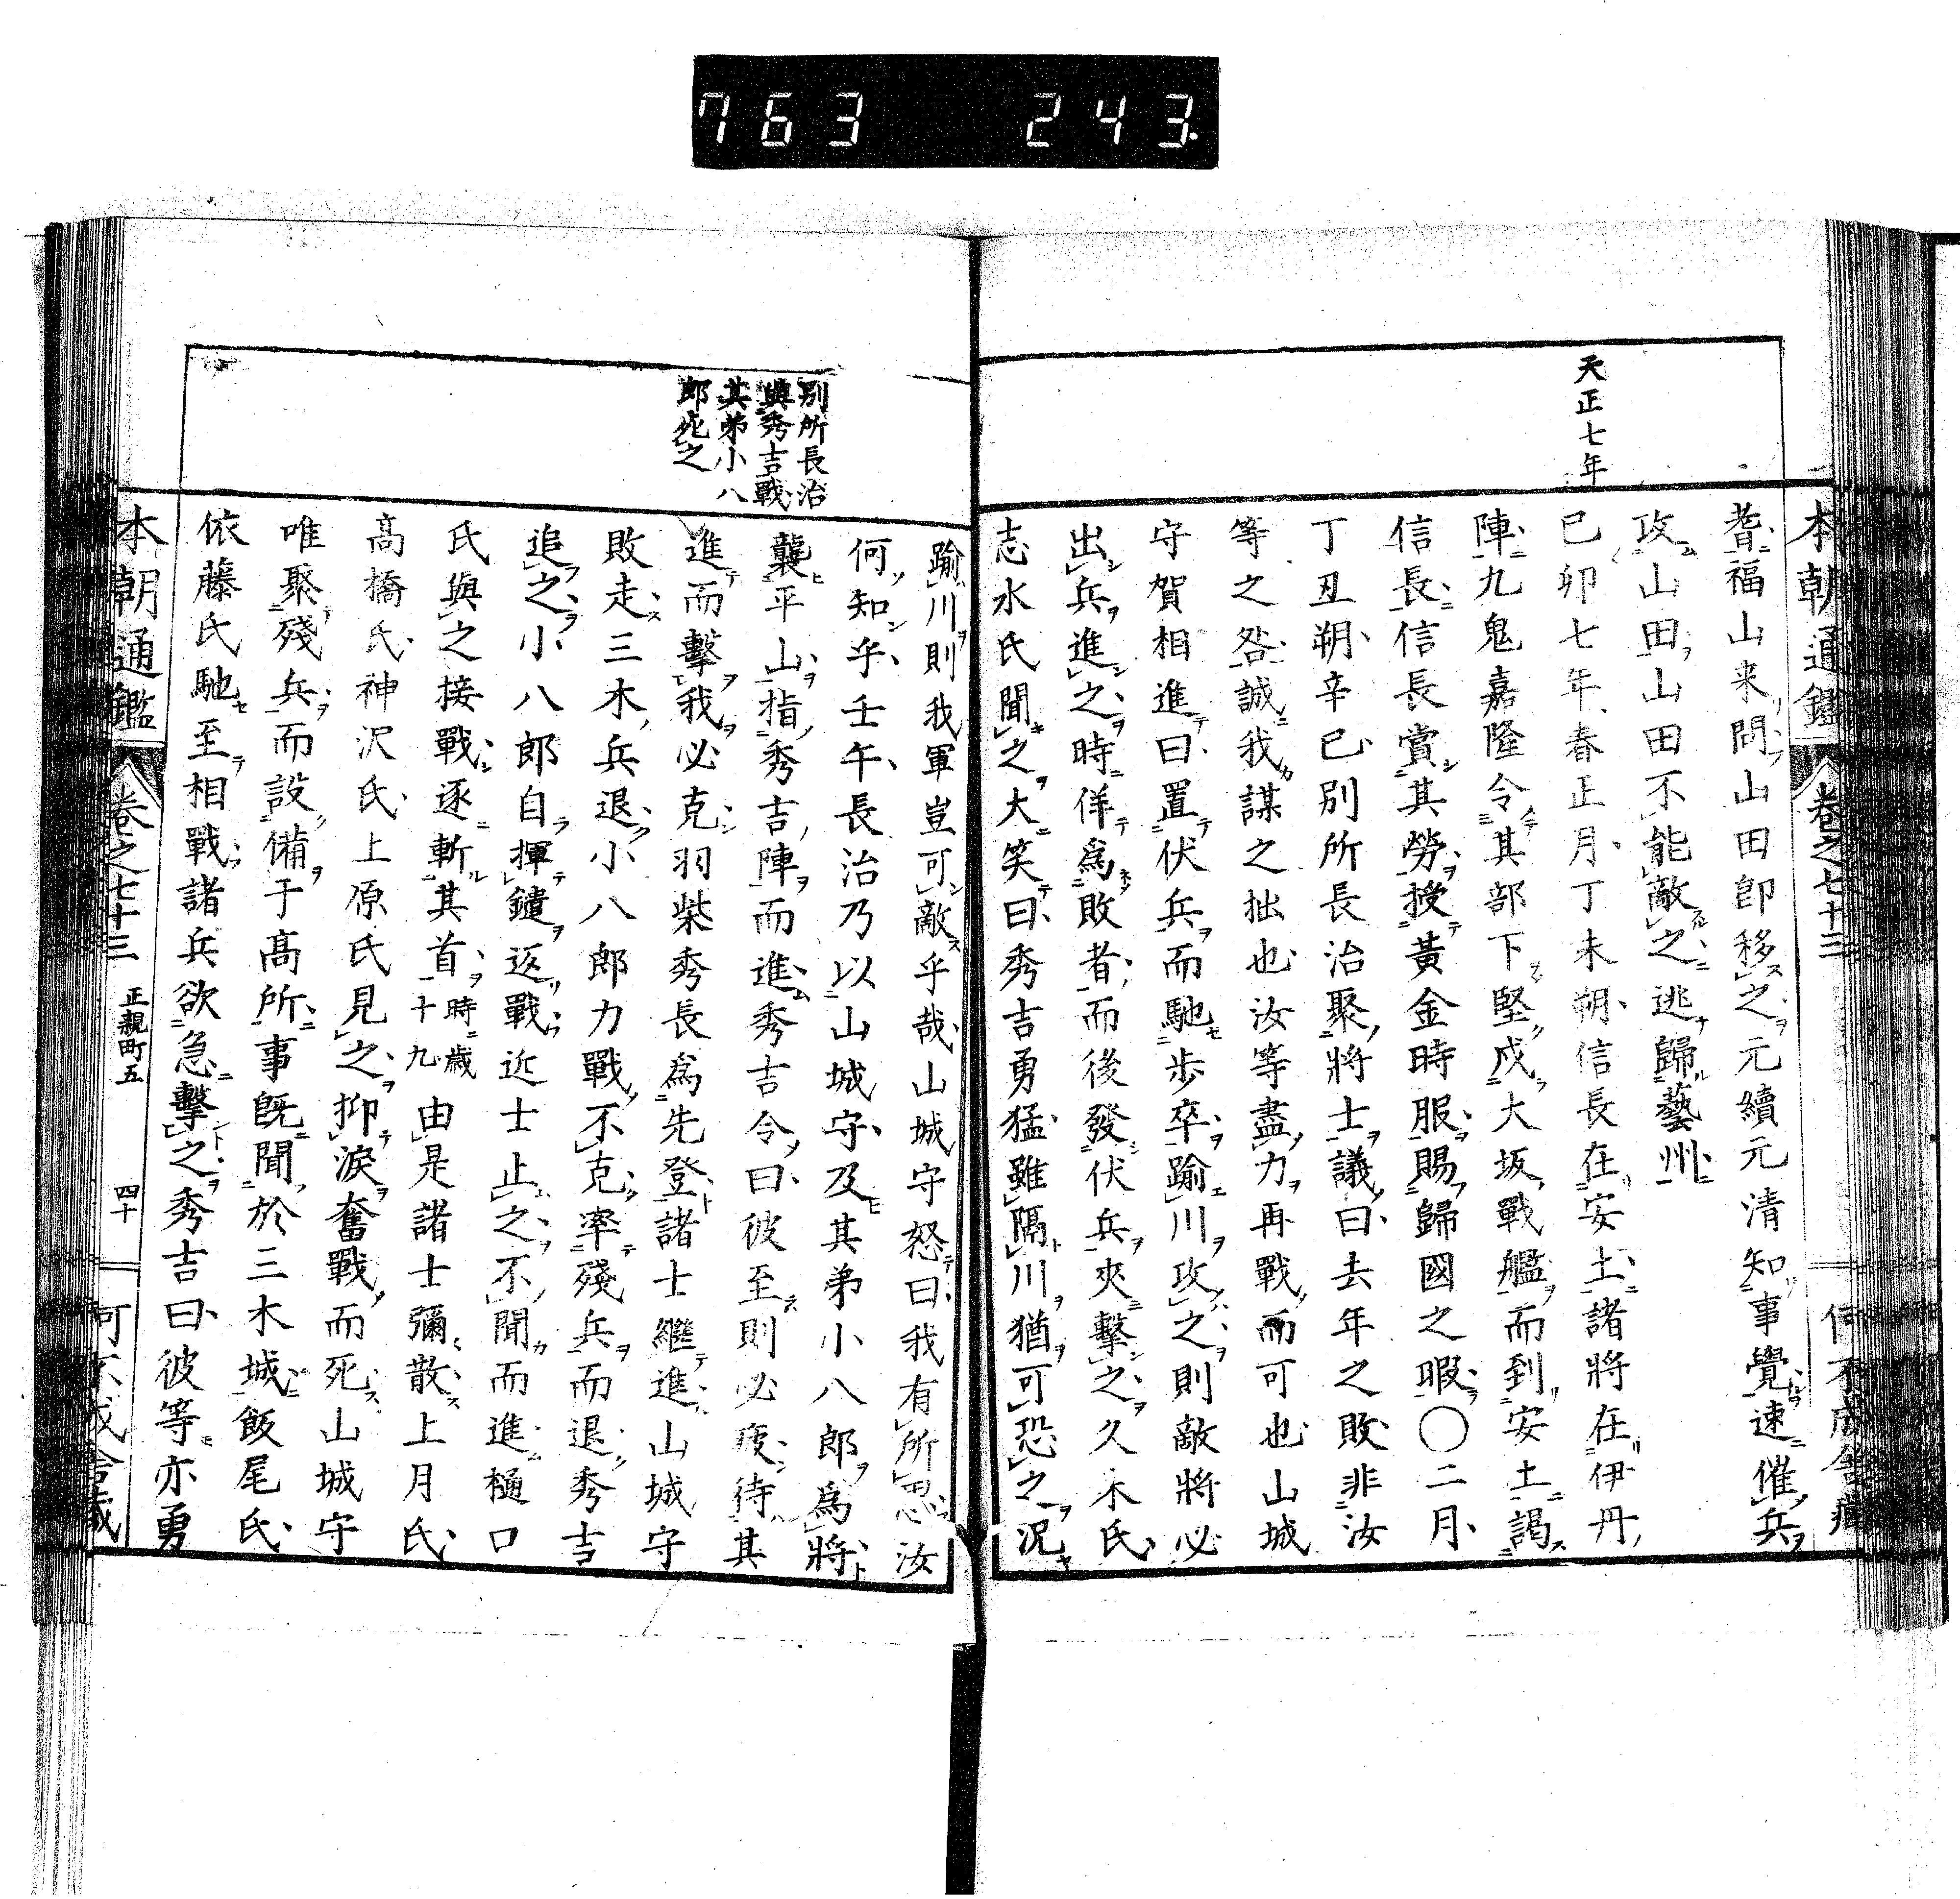 763 243
本朝通鑑 卷之七十三 何不成舍藏
天正七年
耆福山来問山田卽移之元續元清知事覺速催兵
攻山田山田不能敵之逃歸藝州
己卯七年春正月丁未朔信長在安土諸將在伊丹
陣九鬼嘉隆令其部下堅戍大坂戰艦而到安土謁
信長信長賞其勞授黃金時服賜歸國之暇〇二月
丁丑朔辛巳別所長治聚將士議曰去年之敗非汝
等之咎誠我謀之拙也汝等盡力再戰而可也山城
守賀相進曰置伏兵而馳歩卒踰川攻之則敵將必
出兵進之時佯爲敗者而後發伏兵夾擊之久木氏
志水氏聞之大笑曰秀吉勇猛雖隔川猶可恐之況
踰川則我軍豈可敵乎哉山城守怒曰我有所思汝
何知乎壬午長治乃以山城守及其弟小八郎爲將
襲平山指秀吉陣而進秀吉令曰彼至則必疲待其
進而擊我必克羽柴秀長爲先登諸士繼進山城守
敗走三木兵退小八郎力戰不克率殘兵而退秀吉
追之小八郎自揮鑓返戰近士止之不聞而進樋口
氏與之接戰逐斬其首時歲十九由是諸士彌散上月氏
高橋氏神沢氏上原氏見之抑淚奮戰而死山城守
唯聚殘兵而設備于高所事既聞於三木城飯尾氏
依藤氏馳至相戰諸兵欲急擊之秀吉曰彼等亦勇
別所長治
與秀吉戰
其弟小八
郎死之
本朝通鑑 卷之七十三 正親町五 四十